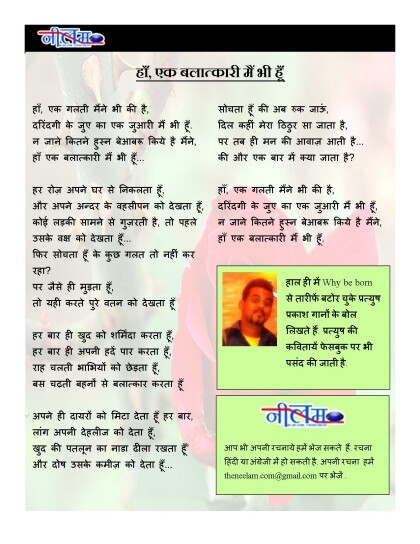 नीलम
हाँ, एक बलात्कारी मैं भी हूँ
हाँ, एक गलती मैंने भी की है,
दरिंदगी के जुए का एक जुआरी मैं भी हूँ.
न जाने कितने हुस्न बेआबरू किये है मैंने,
हाँ एक बलात्कारी मैं भी हूँ...
हर रोज़ अपने घर से निकलता हूँ,
और अपने अन्दर के वहसीपन को देखता हूँ,
कोई लड़की सामने से गुज़रती है, तो पहले
उसके वक्ष को देखता हूँ...
फिर सोचता हूँ के कुछ गलत तो नहीं कर
रहा?
पर जैसे ही मुड़ता हूँ,
तो यही करते पुरे वतन को देखता हूँ
हर बार ही खुद को शर्मिंदा करता हूँ,
हर बार ही अपनी हदें पार करता हूँ,
राह चलती भाभियों को छेड़ता हूँ,
बस चढ़ती बहनों से बलात्कार करता हूँ
अपने ही दायरों को मिटा देता हूँ हर बार,
लांग अपनी देहलीज को देता हूँ,
खुद की पतलून का नाडा ढीला रखता हूँ
और दोष उसके कमीज़ को देता हूँ...
सोचता हूँ की अब रुक जाऊं,
दिल कहीं मेरा ठिठुर सा जाता है,
पर तब ही मन की आवाज़ आती है...
की और एक बार में क्या जाता है?
हाँ, एक गलती मैंने भी की है,
दरिंदगी के जुए का एक जुआरी मैं भी हूँ.
न जाने कितने हुस्न बेआबरू किये है मैंने,
हाँ, एक बलात्कारी मैं भी हूँ.
हाल ही में Why be born
से तारीफें बटोर चुके प्रत्युष
प्रकाश गानों के बोल
लिखते हैं. प्रत्युष की
कवितायेँ फेसबुक पर भी
पसंद की जाती है.
नीलम
आप भी अपनी रचनाये हमें भेज सकते हैं. रचना
हिंदी या अंग्रेजी में हो सकती है. अपनी रचना हमें
theneelam.com@gmail.com पर भेजें .